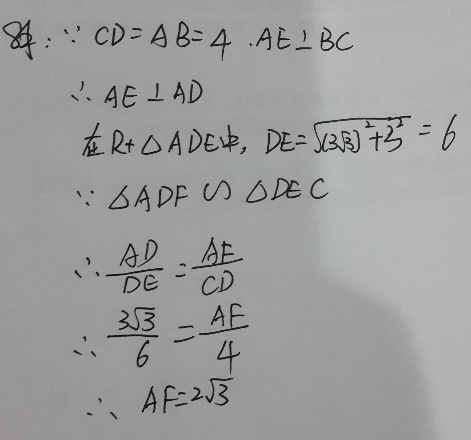 解:∵ CD=AB=4 .AE⊥BC
∴ AE⊥AD
在Rt△ADE中, DE=√((3√3)²+3²) = 6
∵ △ADF ∽ △DEC
∴ AD/DE = AF/CD
∴ 3√3/6 = AF/4
∴ AF=2√3